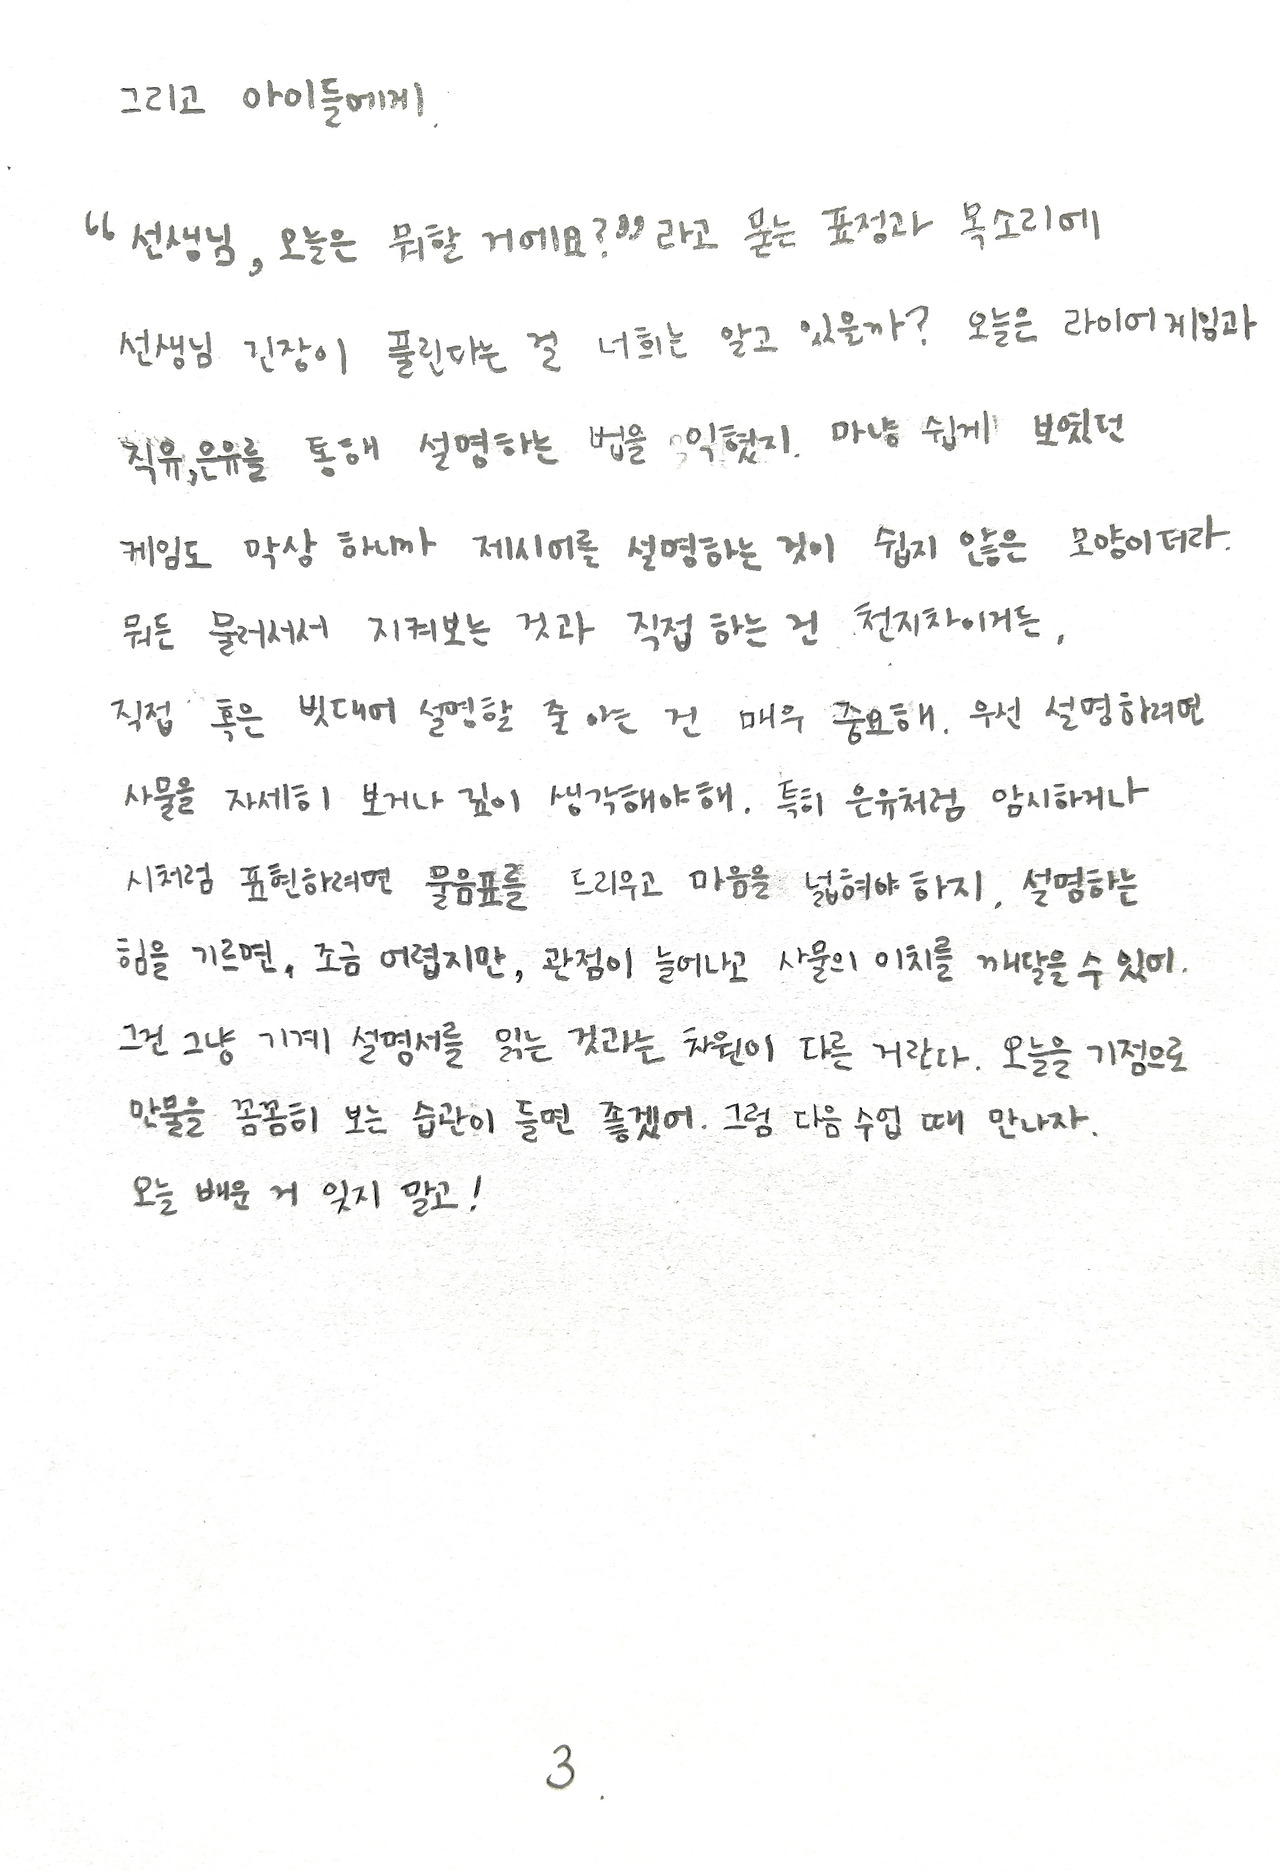 그리고 아이들에게.
“선생님, 오늘은 뭐할 거에요?”라고 묻는 표정과 목소리에
선생님 긴장이 풀린다는 걸 너희는 알고 있을까? 오늘은 라이어게임과
직유,은유를 통해 설명하는 법을 익혔지. 마냥 쉽게 보였던
게임도 막상 하니까 제시어를 설명하는 것이 쉽지 않은 모양이더라.
뭐든 물러서서 지켜보는 것과 직접 하는 건 천지차이거든,
직접 혹은 빗대어 설명할 줄 아는 건 매우 중요해. 우선 설명하려면
사물을 자세히 보거나 깊이 생각해야해. 특히 은유처럼 암시하거나
시처럼 표현하려면 물음표를 드리우고 마음을 넓혀야 하지. 설명하는
힘을 기르면, 조금 어렵지만, 관점이 늘어나고 사물의 이치를 깨달을 수 있어.
그건 그냥 기계 설명서를 읽는 것과는 차원이 다른 거란다. 오늘을 기점으로
만물을 꼼꼼히 보는 습관이 들면 좋겠어. 그럼 다음 수업 때 만나자.
오늘 배운 거 잊지 말고!
3